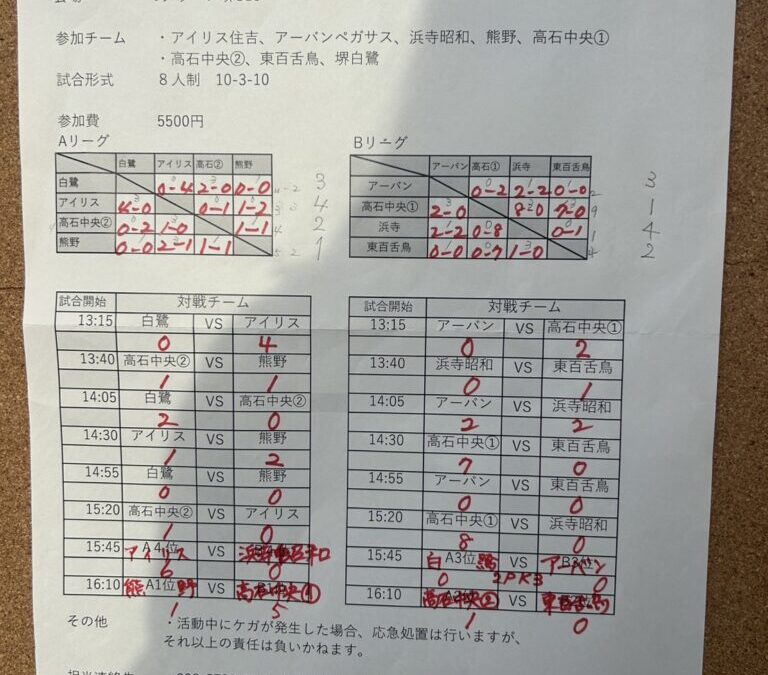 参加チーム ・アイリス住吉、アーバンペガサス、浜寺昭和、熊野、高石中央①
・高石中央②、東百舌鳥、堺白鷺
試合形式 8人制 10-3-10
参加費 5500円
Aリーグ
白鷺 アイリス 高石② 熊野
白鷺 0-4 2-0 0-0 3
アイリス 4-0 0-1 1-2 4
高石中央② 0-2 1-0 1-1 2
熊野 0-0 2-1 1-1 1
Bリーグ
アーバン 高石① 浜寺 東百舌鳥
アーバン 0-2 2-2 0-0 3
高石中央① 2-0 8-0 7-0 1
浜寺 2-2 0-8 0-1 4
東百舌鳥 0-0 0-7 1-0 2
試合開始 対戦チーム
13:15 白鷺 VS アイリス
0 4
13:40 高石中央② VS 熊野
1 1
14:05 白鷺 VS 高石中央②
2 0
14:30 アイリス VS 熊野
1 2
14:55 白鷺 VS 熊野
0 0
15:20 高石中央② VS アイリス
1 0
15:45 アイリス VS
0
16:10 熊野 VS 高石中央①
1 5
試合開始 対戦チーム
13:15 アーバン VS 高石中央①
0 2
13:40 浜寺昭和 VS 東百舌鳥
0 1
14:05 アーバン VS 浜寺昭和
2 2
14:30 高石中央① VS 東百舌鳥
7 0
14:55 アーバン VS 東百舌鳥
0 0
15:20 高石中央① VS 浜寺昭和
8 0
15:45 白鷺 VS アーバン
0 2PK3 0
16:10 高石中央② VS 東百舌鳥
1 0
その他 ・活動中にケガが発生した場合、応急処置は行いますが、
それ以上の責任は負いかねます。